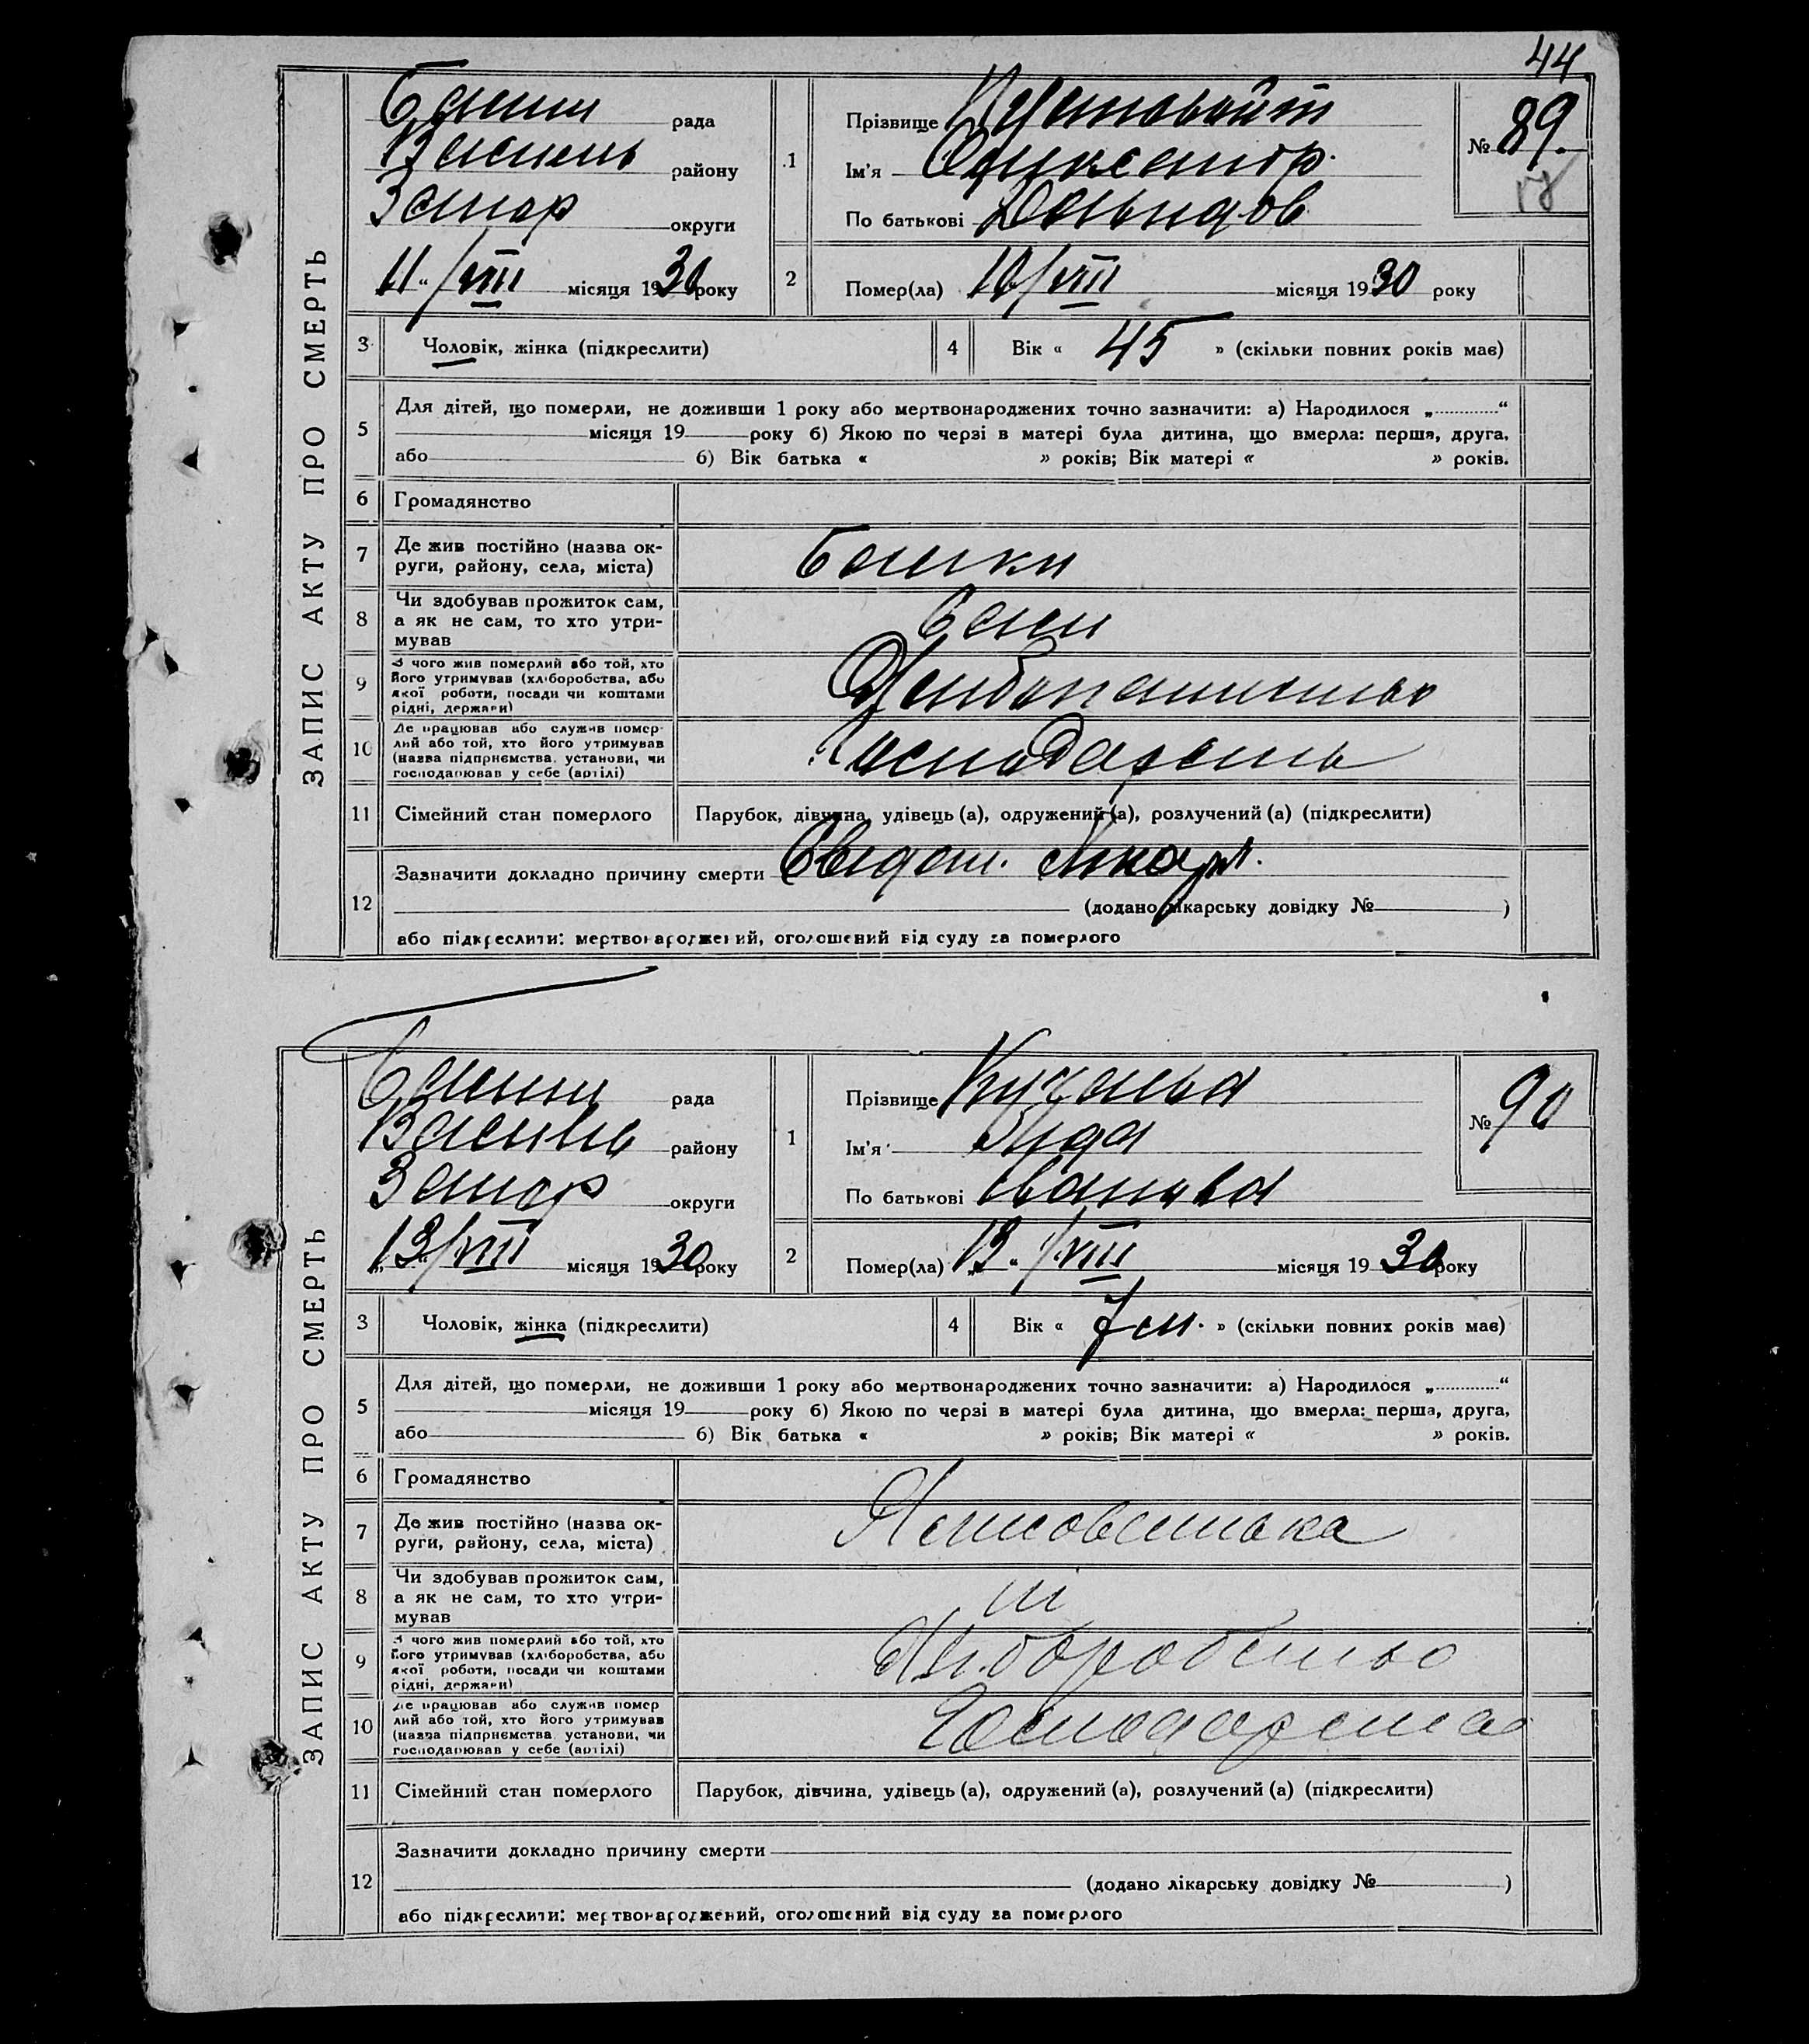 44
ЗАПИС АКТУ ПРО СМЕРТЬ
рада
району
Запор округи
11 /VIII місяця 1930 року
1
Прізвище
Ім'я
По батькові
№ 89.
2
Помер(ла) 10/VIII місяця 1930 року
3
Чоловік, жінка (підкреслити)
4
Вік « 45 » (скільки повних років має)
5
Для дітей, що померли, не доживши 1 року або мертвонароджених точно зазначити: а) Народилося „ “
місяця 19 року б) Якою по черзі в матері була дитина, що вмерла: перша, друга,
або б) Вік батька « » років; Вік матері « » років.
6
Громадянство
7
Де жив постійно (назва ок-
руги, району, села, міста)
8
Чи здобував прожиток сам,
а як не сам, то хто утри-
мував
Сам
9
З чого жив померлий або той, хто
його утримував (хліборобства, або
якої роботи, посади чи коштами
рідні, держави)
10
Де працював або служив помер-
лий або той, хто його утримував
(назва підприємства, установи, чи
господарював у себе (артілі)
11
Сімейний стан померлого
Парубок, дівчина, удівець (а), одружений (а), розлучений (а) (підкреслити)
12
Зазначити докладно причину смерти
(додано лікарську довідку № )
або підкреслити: мертвонароджений, оголошений від суду за померлого
ЗАПИС АКТУ ПРО СМЕРТЬ
рада
району
Запор округи
„13 /VIII місяця 1930 року
1
Прізвище
Ім'я
По батькові Іванівна
№ 90
2
Помер(ла) 13 /VIII місяця 1930 року
3
Чоловік, жінка (підкреслити)
4
Вік « 7 м. » (скільки повних років має)
5
Для дітей, що померли, не доживши 1 року або мертвонароджених точно зазначити: а) Народилося „ “
місяця 19 року б) Якою по черзі в матері була дитина, що вмерла: перша, друга,
або б) Вік батька « » років; Вік матері « » років.
6
Громадянство
7
Де жив постійно (назва ок-
руги, району, села, міста)
8
Чи здобував прожиток сам,
а як не сам, то хто утри-
мував
9
З чого жив померлий або той, хто
його утримував (хліборобства, або
якої роботи, посади чи коштами
рідні, держави)
Хліборобство
10
Де працював або служив помер
лий або той, хто його утримував
(назва підприємства, установи, чи
господарював у себе (артілі)
11
Сімейний стан померлого
Парубок, дівчина, удівець (а), одружений (а), розлучений (а) (підкреслити)
12
Зазначити докладно причину смерти
(додано лікарську довідку № )
або підкреслити: мертвонароджений, оголошений від суду за померлого